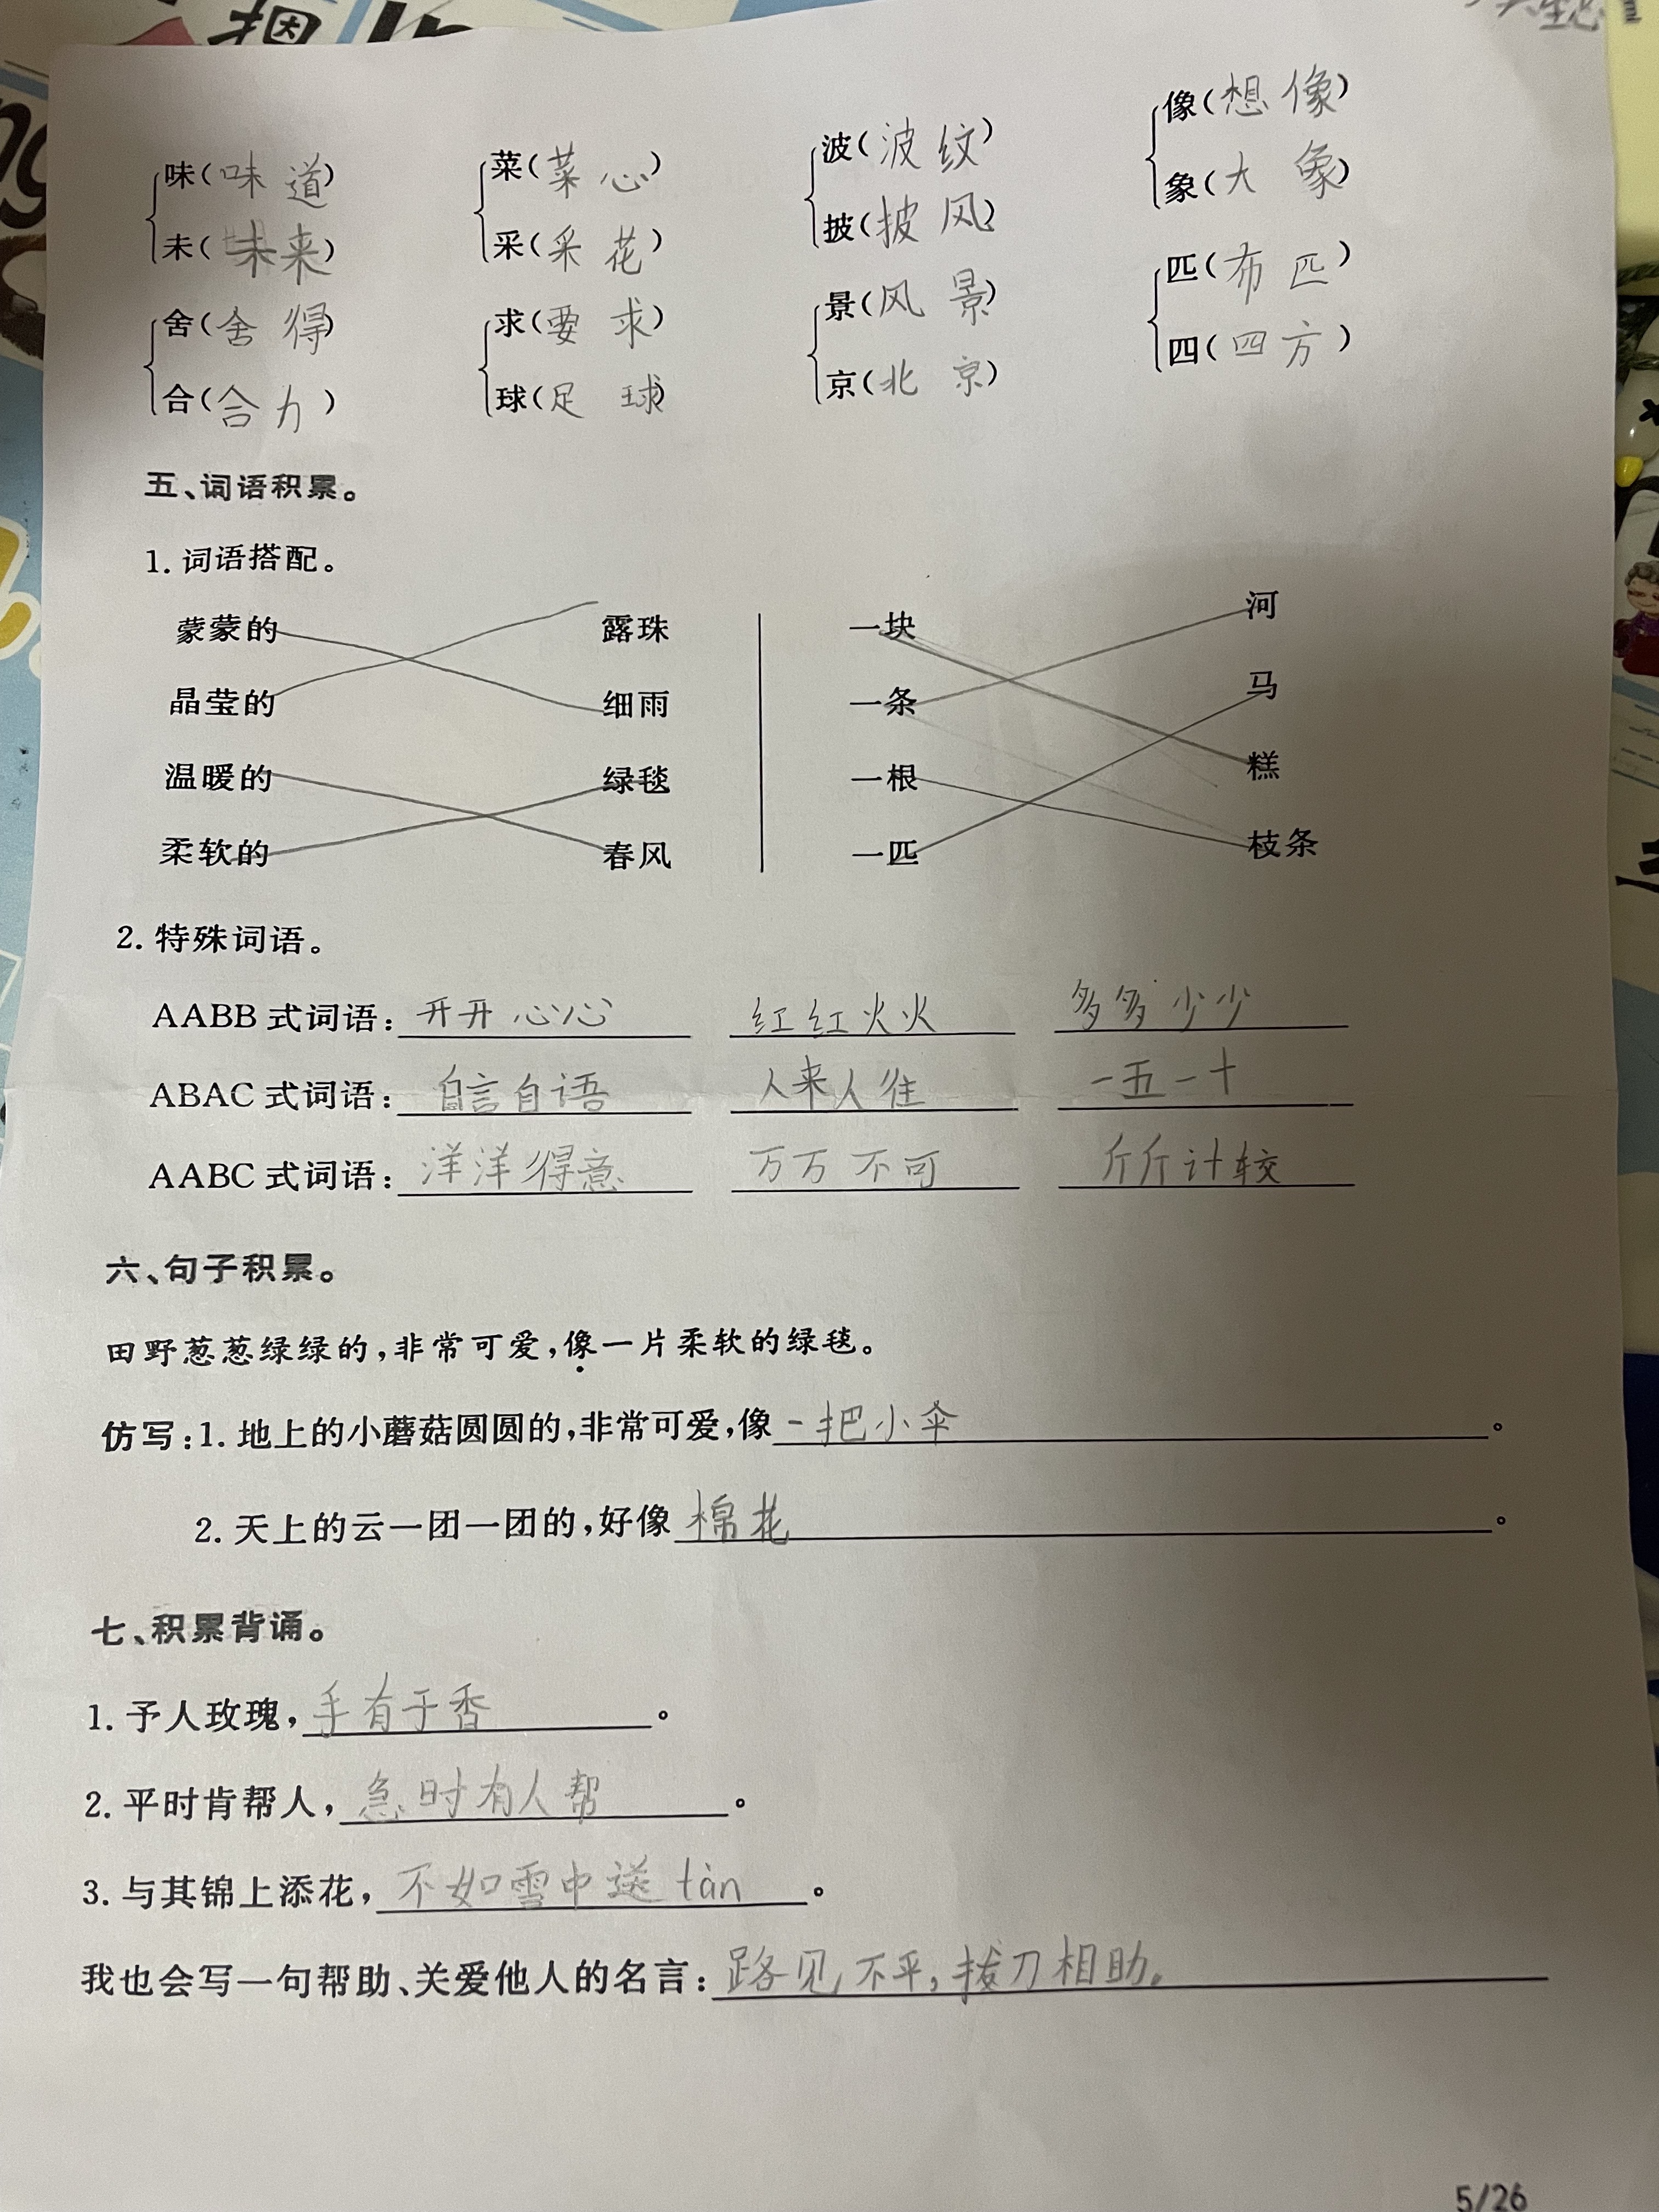 味(味道) 菜(菜心) 波(波纹) 像(想像)
未(未来) 采(采花) 披(披风) 象(大象)
舍(舍得) 求(要求) 景(风景) 匹(布匹)
合(合力) 球(足球) 京(北京) 四(四方)
五、词语积累。
1. 词语搭配。
蒙蒙的 露珠 一块 河
晶莹的 细雨 一条 马
温暖的 绿毯 一根 糕
柔软的 春风 一匹 枝条
2. 特殊词语。
AABB 式词语: 开开心心 红红火火 多多少少
ABAC 式词语: 自言自语 人来人往 一五一十
AABC 式词语: 洋洋得意 万万不可 斤斤计较
六、句子积累。
田野葱葱绿绿的,非常可爱,像一片柔软的绿毯。
仿写:1. 地上的小蘑菇圆圆的,非常可爱,像一把小伞。
2. 天上的云一团一团的,好像棉花。
七、积累背诵。
1. 予人玫瑰,手有于香。
2. 平时肯帮人,急时有人帮。
3. 与其锦上添花,不如雪中送tàn。
我也会写一句帮助、关爱他人的名言:路见不平,拔刀相助。
5/26